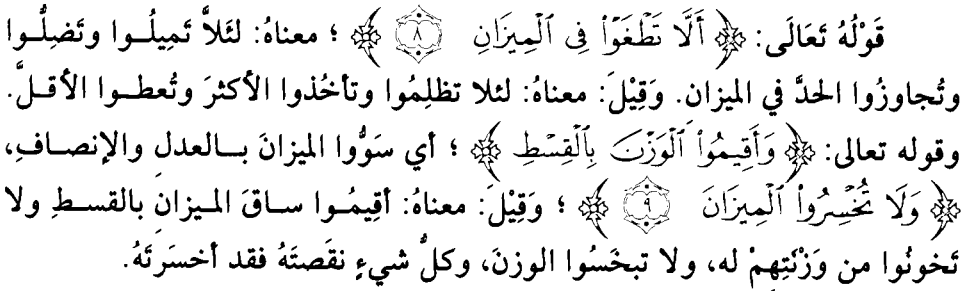 قَوْلُهُ تَعَالَى: ﴿ أَلَّا تَطْغَوْا۟ فِى ٱلْمِيزَانِ ٨ ﴾ ؛ معناهُ: لئَلاَّ تَمِيلُـوا وتَضِلُّـوا
وتُجاوزُوا الحدَّ في الميزان. وَقِيْلَ: معناهُ: لئلا تظلِمُوا وتأخُذوا الأكثرَ وتُعطـوا الأقـلَّ.
وقوله تعالى: ﴿ وَأَقِيمُوا۟ ٱلْوَزْنَ بِٱلْقِسْطِ ﴾ ؛ أي سَوُّوا الميزانَ بـالعدلِ والإنصـافِ،
﴿ وَلَا تُخْسِرُوا۟ ٱلْمِيزَانَ ٩ ﴾ ؛ وَقِيْلَ: معناهُ: أقِيمُـوا سـاقَ المـيزانِ بالقسـطِ ولا
تَخونُوا من وَزَنْتِهِمْ له، ولا تبخَسُوا الوزنَ، وكلُّ شيءٍ نقَصتَهُ فقد أخسَرتَهُ.